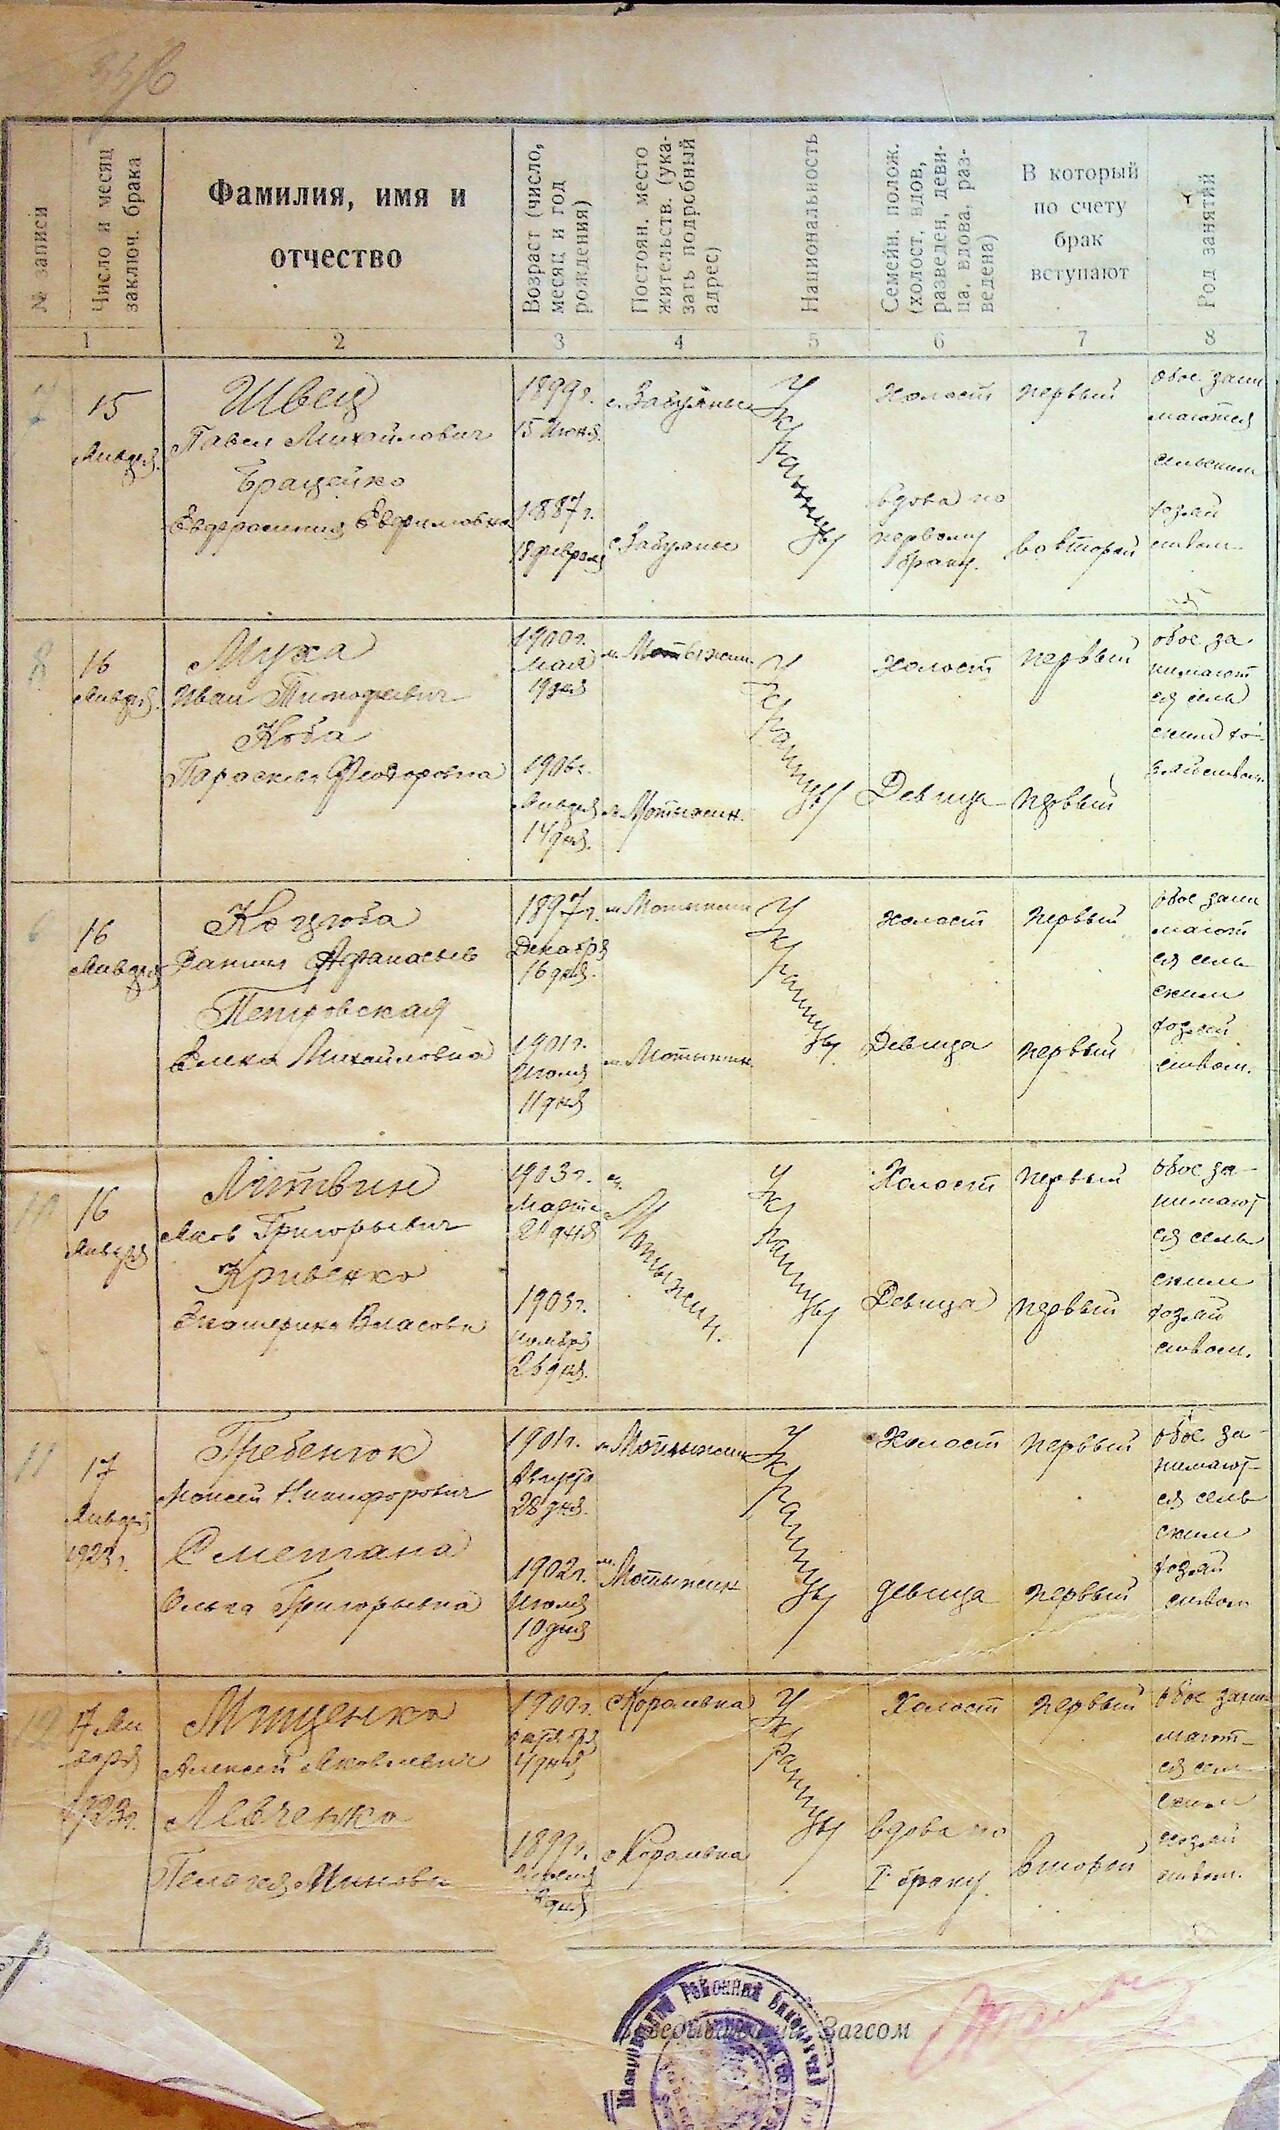 № записи
Число и месяц
заключ. брака
Фамилия, имя и
отчество
Возраст (число,
месяц и год
рождения)
Постоян. место
жительств. (ука-
зать подробный
адрес)
Национальность
Семейн. полож.
(холост, вдов,
разведен, деви-
ца, вдова, раз-
ведена)
В который
по счету
брак
вступают
Род занятий
1
2
3
4
5
6
7
8
7
15
Января
Швец
Павел Михайлович
Брацейко
Евдросиния Евфимовна
1899г.
15 Июня
1887г.
18 февраля
с. Забуянье
с. Забуянье
Украинцы
Холост
вдова по
первому
браку.
первый
во второй
обое зани
маются
сельским
хозяй
ством
8
16
Января
Муха
Иван Тимофеевич
Коба
Параскева Феодоровна
1900г.
мая
19 дня
1906г.
Января
14 дня.
м. Мотыжин
м. Мотыжин.
Украинцы
Холост
Девица
первый
первый
обое за
нимают
ся сель
ским хо-
зяйством
16
Января
Коцюба
Даниил Афанасьев
Петровская
Елена Михайловна
1897г.
Декабря
16 дня.
1901г.
Июля
11 дня
м. Мотыжин
м. Мотыжин.
Украинцы.
Холост
Девица
первый
первый
обое зани
мают
ся сель
ским
хозяй
ством.
10
16
Января
Литвин
Яков Григорьевич
Кривенко
Екатерина Власовн
1903г.
Марта
21 дня
1903г.
ноября
26 дня.
м.
Мотыжин.
Украинцы
Холост
Девица
первый
первый
обое за-
нимают
ся сель
ским
хозяй
ством.
11
17
Января
1923г.
Гребенюк
Моисей Никифорович
Сметана
Ольга Григорьевна
1901г.
Августа
28 дня.
1902г.
Июля
10 дня
м. Мотыжин
м.
Мотыжин
Украинцы
Холост
девица
первый
первый
обое за-
нимают-
ся сель
ским
хозяй
ством
12
17 Ян
варя
1923г.
Мищенко
Алексей Яковлевич
Левченко
Пелагея Миновн
1900г.
октября
4 дня
1899г.
дня
с Королевка
с Королевка
Украинцы
Холост
вдова по
I браку.
первый
второй
обое зани
мают-
ся сель
ским
хозяй
ством.
Заведывающий Загсом